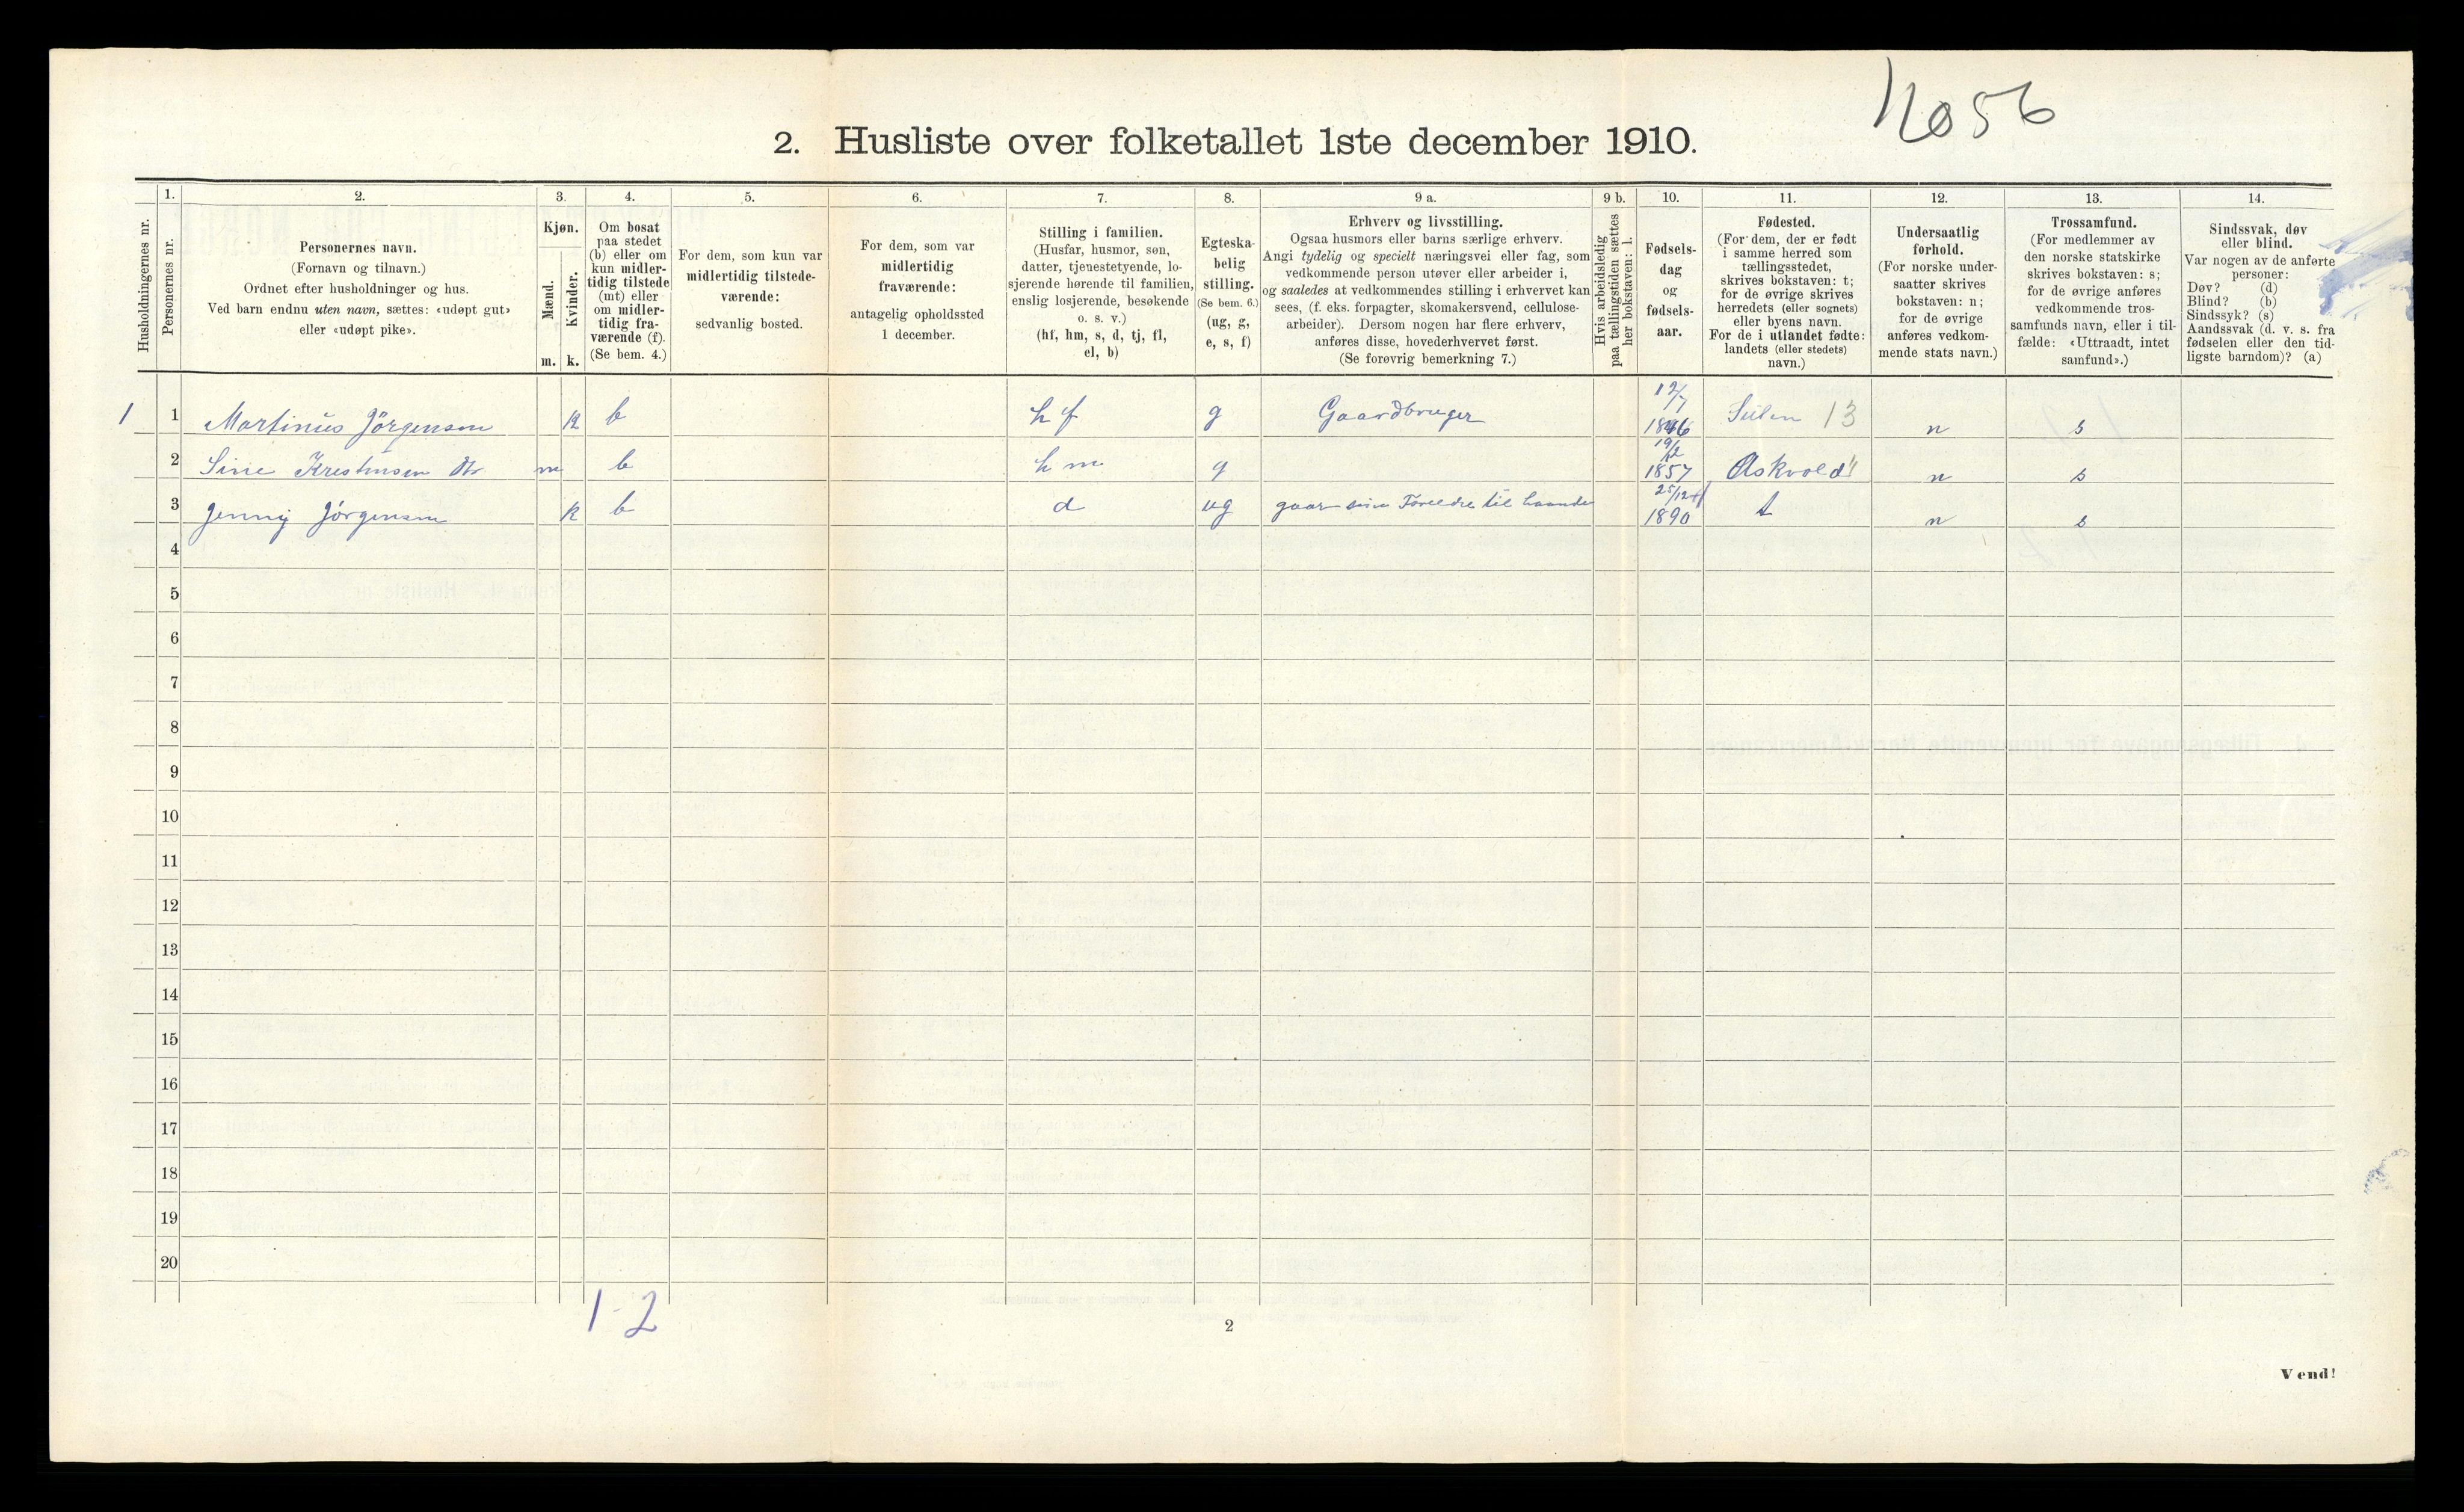 No 56
2. Husliste over folketallet 1ste december 1910.
Husholdningernes nr.
1.
Personernes nr.
2.
Personernes navn.
(Fornavn og tilnavn.)
Ordnet efter husholdninger og hus.
Ved barn endnu uten navn, sættes: «udøpt gut»
eller «udøpt pike».
3.
Kjøn.
Mænd.
Kvinder.
m. k.
4.
Om bosat
paa stedet
(b) eller om
kun midler-
tidig tilstede
(mt) eller
om midler-
tidig fra-
værende (f).
(Se bem. 4.)
5.
For dem, som kun var
midlertidig tilstede-
værende:
sedvanlig bosted.
6.
For dem, som var
midlertidig
fraværende:
antagelig opholdssted
1 december.
7.
Stilling i familien.
(Husfar, husmor, søn,
datter, tjenestetyende, lo-
sjerende hørende til familien,
enslig losjerende, besøkende
o. s. v.)
(hf, hm, s, d, tj, fl,
el, b)
8.
Egteska-
belig
stilling.
(Se bem. 6.)
(ug, g,
e, s, f)
9 a.
Erhverv og livsstilling.
Ogsaa husmors eller barns særlige erhverv.
Angi tydelig og specielt næringsvei eller fag, som
vedkommende person utøver eller arbeider i,
og saaledes at vedkommendes stilling i erhvervet kan
sees, (f. eks. forpagter, skomakersvend, cellulose-
arbeider). Dersom nogen har flere erhverv,
anføres disse, hovederhvervet først.
(Se forøvrig bemerkning 7.)
9 b.
Hvis arbeidsledig
paa tællingstiden sættes
her bokstaven: l.
10.
Fødsels-
dag
og
fødsels-
aar.
11.
Fødested.
(For dem, der er født
i samme herred som
tællingsstedet,
skrives bokstaven: t;
for de øvrige skrives
herredets (eller sognets)
eller byens navn.
For de i utlandet fødte:
landets (eller stedets)
navn.)
12.
Undersaatlig
forhold.
(For norske under-
saatter skrives
bokstaven: n;
for de øvrige
anføres vedkom-
mende stats navn.)
13.
Trossamfund.
(For medlemmer av
den norske statskirke
skrives bokstaven: s;
for de øvrige anføres
vedkommende tros-
samfunds navn, eller i til-
fælde: «Uttraadt, intet
samfund».)
14.
Sindssvak, døv
eller blind.
Var nogen av de anførte
personer:
Døv? (d)
Blind? (b)
Sindssyk? (s)
Aandssvak (d. v. s. fra
fødselen eller den tid-
ligste barndom)? (a)
1 1 Martinus Jörgensen k b h f g Gaardbruger 12/7 1846 Sulen 13 n s
2 Sine Krestensen m b h m g 1857 Askvold n s
3 Jenny Jörgensen k b d ug gaar sine Foreldre til haande 25/12 1890 t n s
4
5
6
7
8
9
10
11
12
13
14
15
16
17
18
19
20
1-2
2
Vend!